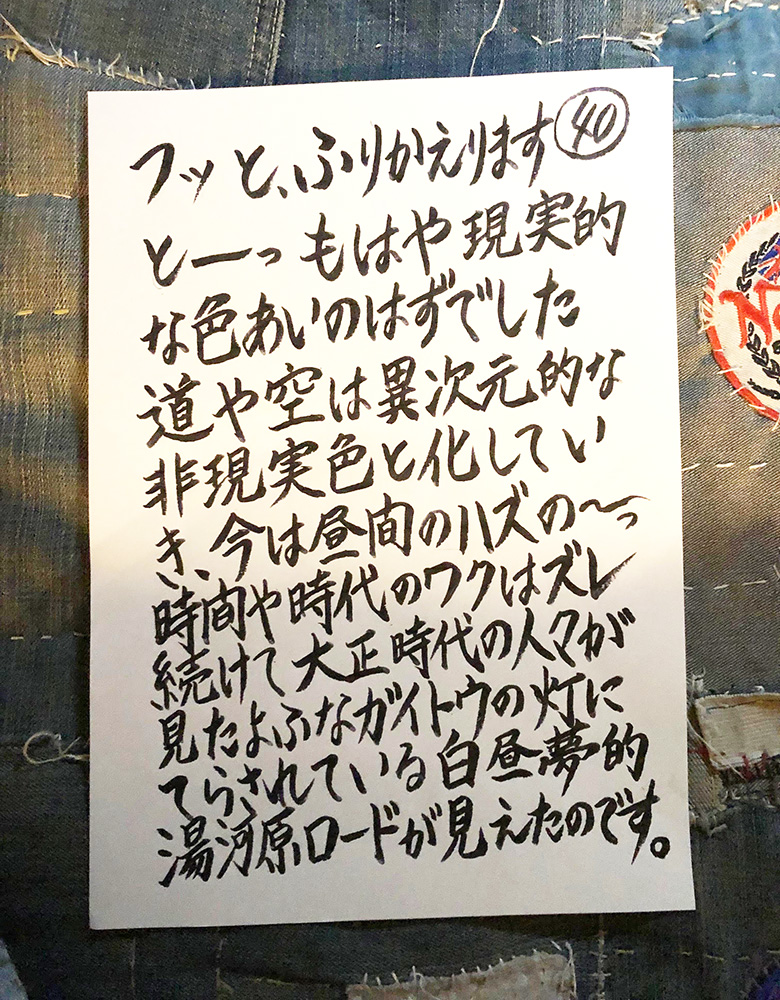 フッと、ふりかえります㊵
と一っもはや現実的
な色あいのはずでした
道や空は異次元的な
非現実色と化してい
き、今は昼間のハズの〜っ
時間や時代のワクはズレ
続けて大正時代の人々が
見たよふなガイトウの灯に
てらされている白昼夢的
湯河原ロードが見えたのです。